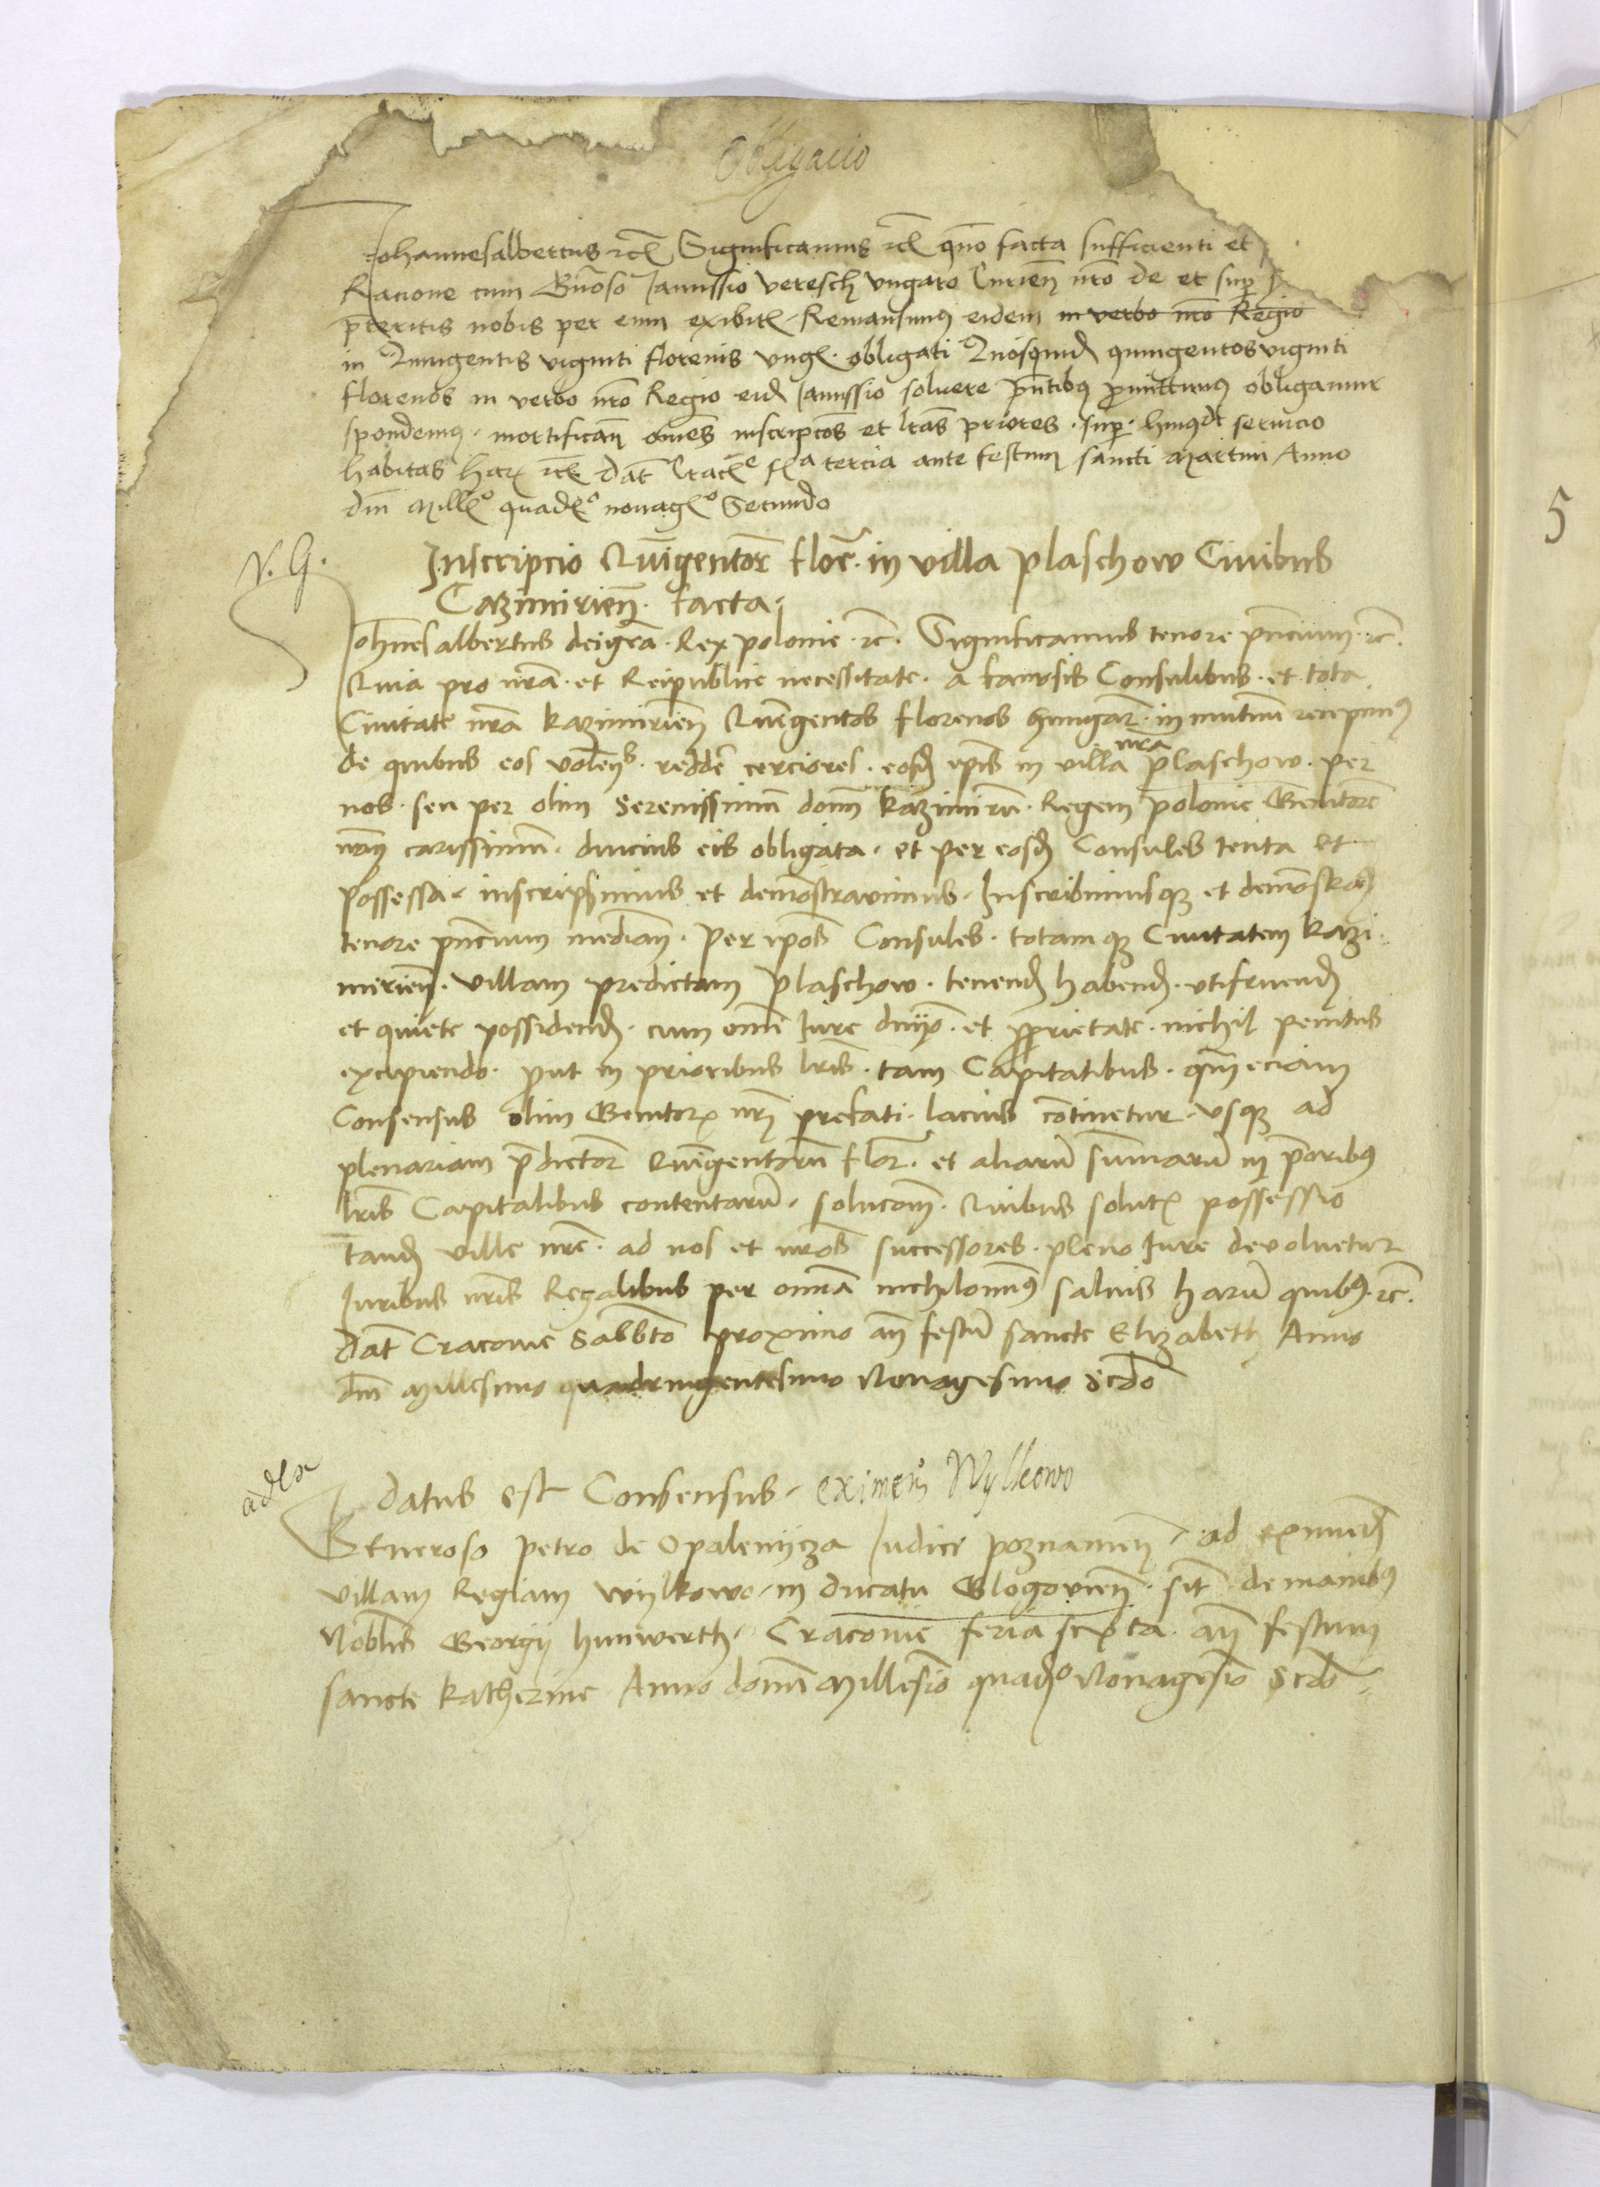 Obligacio
Johannesalbertus etc Significamus etc quō facta sufficienti et
Racione cum Gn̄oso Janussio veresch vngaro Curien̄ nr̄o de et sup
p̄teritis nobis per eum exibitꝭ Remansimꝰ eidem in verbo nr̄o Regio
in Quingentis viginti florenis vngꝭ obligati Quosquid quingentos viginti
florenos in verbo nr̄o Regio eid Janussio soluere pn̄tibꝰ ꝓmittimꝰ obligamur
spondemꝰ mortifican̄ om̄es inscripcōes et lr̄as priores sup hmōi seruicio
habitas harꝝ etc Dat̄ Cracꝭe fꝭa tercia ante festum sancti Martini Anno
dn̄i Millꝭo quadꝭo nonagꝭo Secundo
N. G.
Inscripcio Quīgentorꝝ flor̄. in villa plaschow Ciuibus
Cazimirien̄. facta.
Joh̄nesalbertus deigrā. Rex polonie. etc. Significamus tenore pn̄cium. etc.
Quia pro nr̄a. et Reipublice necessitate. a famosis Consulibus. et tota
Ciuitate nr̄a kazimirien̄ Quīgentos florenos hungar̄. in mutuū recepimꝰ
de quibus eos volen̄s. redder̄ cerciores. eosd ip̄is in villa nr̄a plaschow. per
nos. seu per olim Serenissimū dom̄ kazimirū. Regem polonie Genitorē
nr̄m carissimū. diucius eis obligata. et per eosd Consules tenta et
possessa. inscripsimus et demōstrauimus. Inscribimusqꝫ et demōstram̄
tenore pn̄cium median̄. per ip̄os Consules. totamqꝫ Ciuitatem kazi-
mirien̄. villam predictam plaschow. tenend habend. vtifruend
et quiete possidend. cum om̄i Iure dn̄ijo. et ꝓprietate. nichil penitus
excipiendo. put in prioribus lr̄is. tam Capitalibus. qm̄ eciam
Consensus olim Genitorꝭ nr̄i prefati. lacius cōtinetur. vsqꝫ ad
plenariam p̄dictorꝝ Quīgentorū flor̄. et aliarū sūmarū in p̄oribꝰ
lr̄is Capitalibus contentarū. solucōem. Quibus solutꝭ possessio
tand ville nr̄e. ad nos et nr̄os successores. pleno Iure deuoluetur
Iuribus nr̄is Regalibus per om̄ia nichilomīꝰ saluis harū quibꝰ. etc.
Dat̄ Cracouie Sabbto proximo an̄ festū sancte Elizabeth Anno
dn̄i Millesimo quadringentesimo Nonagesimo Scdo
Datus est Consensus. eximen̄ Wylkowo
Generoso Petro de Opalenijcza Judici poznanien̄. ad eximend
villam Regiam wijlkowo. in ducatu Glogouien̄. sit̄ de manibꝰ
Nobīlis Georgij hunwerth. Cracouie feria sexta. an̄ festum
sancte katherine Anno domī Millesīo quadꝭo Nonagesīo Scdo
5